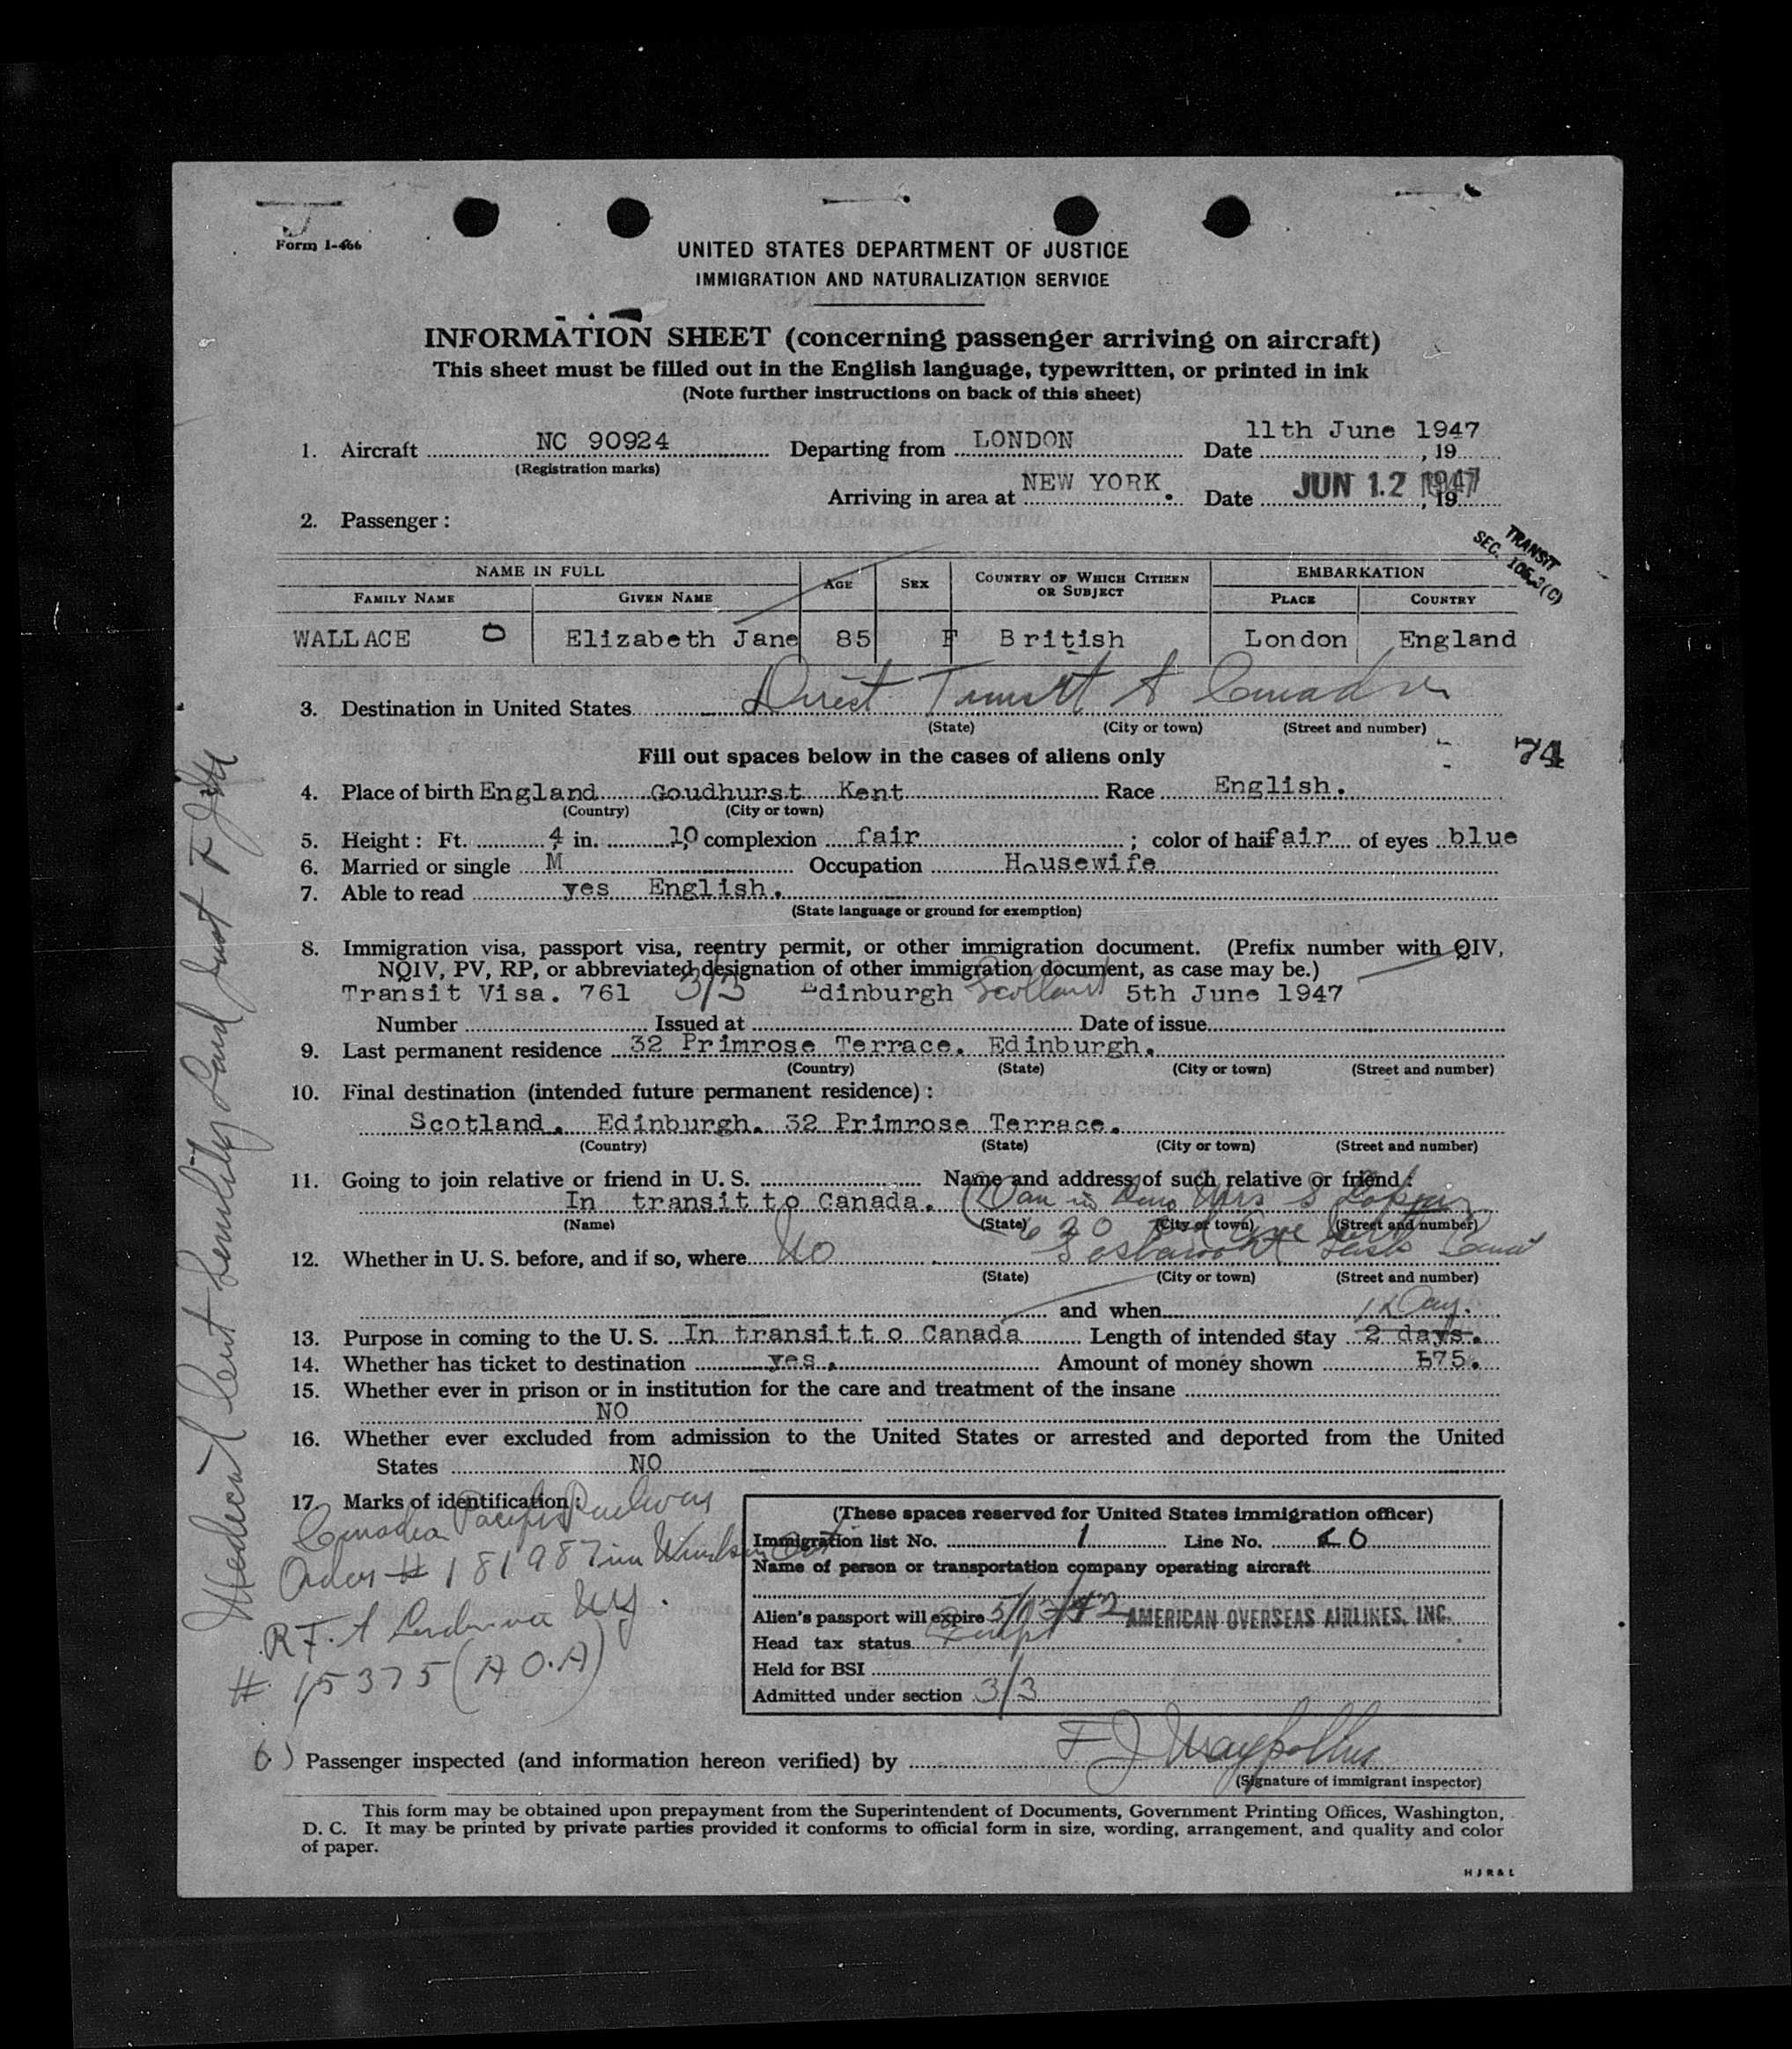 Form I-466
UNITED STATES DEPARTMENT OF JUSTICE
IMMIGRATION AND NATURALIZATION SERVICE
INFORMATION SHEET (concerning passenger arriving on aircraft)
This sheet must be filled out in the English language, typewritten, or printed in ink
(Note further instructions on back of this sheet)
1. Aircraft NC 90924 Departing from LONDON Date 11th June 1947, 19
(Registration marks)
Arriving in area at NEW YORK. Date JUN 12 1947, 19
2. Passenger:
TRANSIT
SEC. 105.3(C)
NAME IN FULL AGE SEX COUNTRY OF WHICH CITIZEN OR SUBJECT EMBARKATION
FAMILY NAME GIVEN NAME PLACE COUNTRY
WALLACE Elizabeth Jane 85 F British London England
3. Destination in United States Direct Transit to Canada
(State) (City or town) (Street and number)
Fill out spaces below in the cases of aliens only 74
4. Place of birth England Goudhurst Kent Race English.
(Country) (City or town)
5. Height: Ft. 4 in. 10 complexion fair ; color of hair fair of eyes blue
6. Married or single M Occupation Housewife
7. Able to read yes English.
(State language or ground for exemption)
8. Immigration visa, passport visa, reentry permit, or other immigration document. (Prefix number with QIV,
NQIV, PV, RP, or abbreviated designation of other immigration document, as case may be.)
Transit Visa. 761 3/3 Edinburgh Scotland 5th June 1947
Number Issued at Date of issue
9. Last permanent residence 32 Primrose Terrace. Edinburgh.
(Country) (State) (City or town) (Street and number)
10. Final destination (intended future permanent residence):
Scotland. Edinburgh. 32 Primrose Terrace.
(Country) (State) (City or town) (Street and number)
11. Going to join relative or friend in U. S. Name and address of such relative or friend:
In transit to Canada. Mrs S
(Name) (State) (City or town) (Street and number)
12. Whether in U. S. before, and if so, where No
(State) (City or town) (Street and number)
and when 1 Day.
13. Purpose in coming to the U. S. In transit t o Canada Length of intended stay 2 days.
14. Whether has ticket to destination yes. Amount of money shown £75.
15. Whether ever in prison or in institution for the care and treatment of the insane
NO
16. Whether ever excluded from admission to the United States or arrested and deported from the United
States NO
17. Marks of identification:
Canadian Pacific Railway
Order # 181987
R.F. A
# 15375 (A.O.A)
(These spaces reserved for United States immigration officer)
Immigration list No. 1 Line No. 0
Name of person or transportation company operating aircraft
AMERICAN OVERSEAS AIRLINES, INC.
Alien's passport will expire
Head tax status Exempt
Held for BSI
Admitted under section 3/3
Passenger inspected (and information hereon verified) by
(Signature of immigrant inspector)
This form may be obtained upon prepayment from the Superintendent of Documents, Government Printing Offices, Washington,
D. C. It may be printed by private parties provided it conforms to official form in size, wording, arrangement, and quality and color
of paper.
HJR&L
Medical Cert Senility